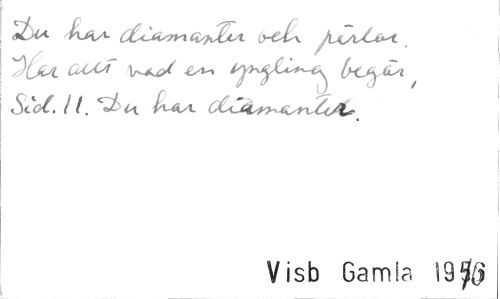 Du har diamanter och pärlor.
Har allt vad en yngling begär,
Sid. 11. Du har diamanter.
Visb Gamla 19